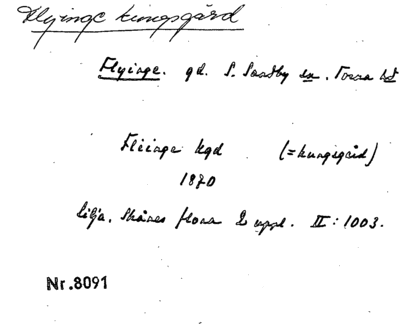 Flyinge kungsgård
Flyinge. gd. S. Sandby sn. Torna hd
Fliinge kgd (= kungsgård)
1870
Lilja, Skånes flora 2 uppl. II: 1003.
Nr.8091